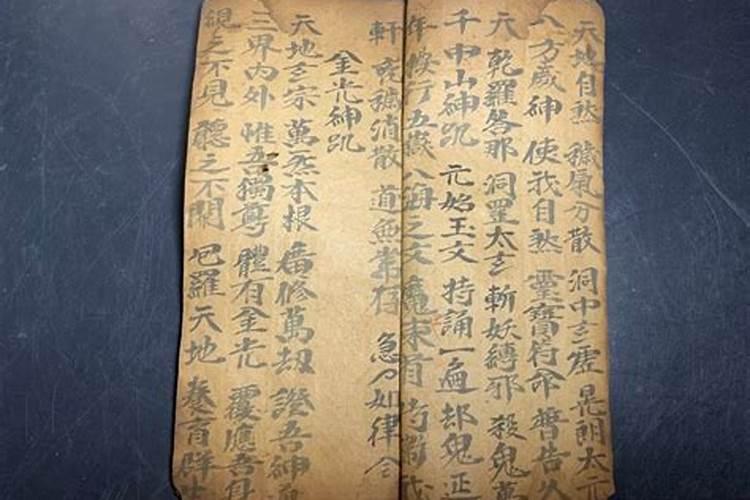 天地自然 穢氣分散 洞中玄虛 晃朗太
八方威神 使我自然 靈寶符命 普告九
乾羅答那 洞罡太玄 斬妖縛邪 殺鬼萬
千 中山神咒 元始玉文 持誦一遍 却鬼
年 按行五嶽 八海之文 魔王束首 侍衛我
軒 㐫穢消散 道炁常存 急〻如律令
金光神咒
天地玄宗 萬炁本根 廣修萬劫 證吾神
三界內外 惟吾獨尊 體有金光 覆應吾身
視之不見 聽之不聞 包羅天地 養育群